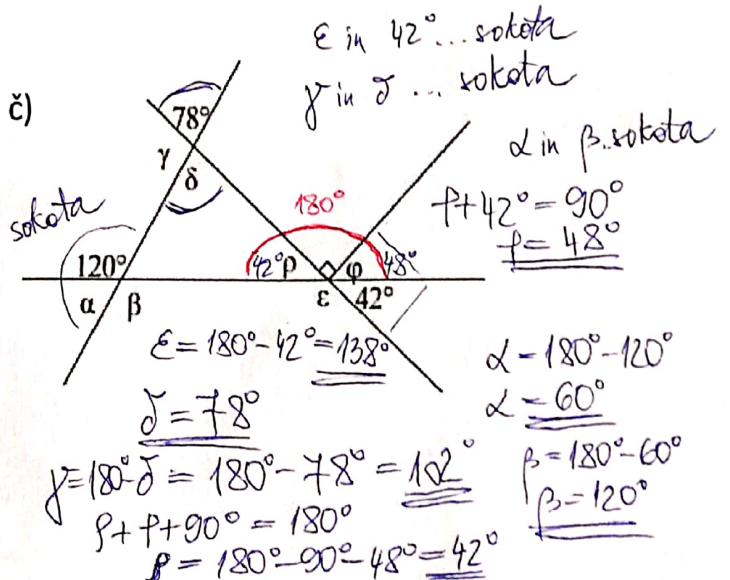 ε in 42° ... sokota
γ in δ ... sokota
č)
78°
α in β..sokota
γ
δ
sokota
180°
φ+42°=90°
φ=48°
120°
42°
ρ
φ
48°
α
β
ε
42°
ε=180°-42°=138°
α=180°-120°
δ=78°
α=60°
γ=180°-δ=180°-78°=102°
β=180°-60°
β=120°
ρ+φ+90°=180°
ρ=180°-90°-48°=42°